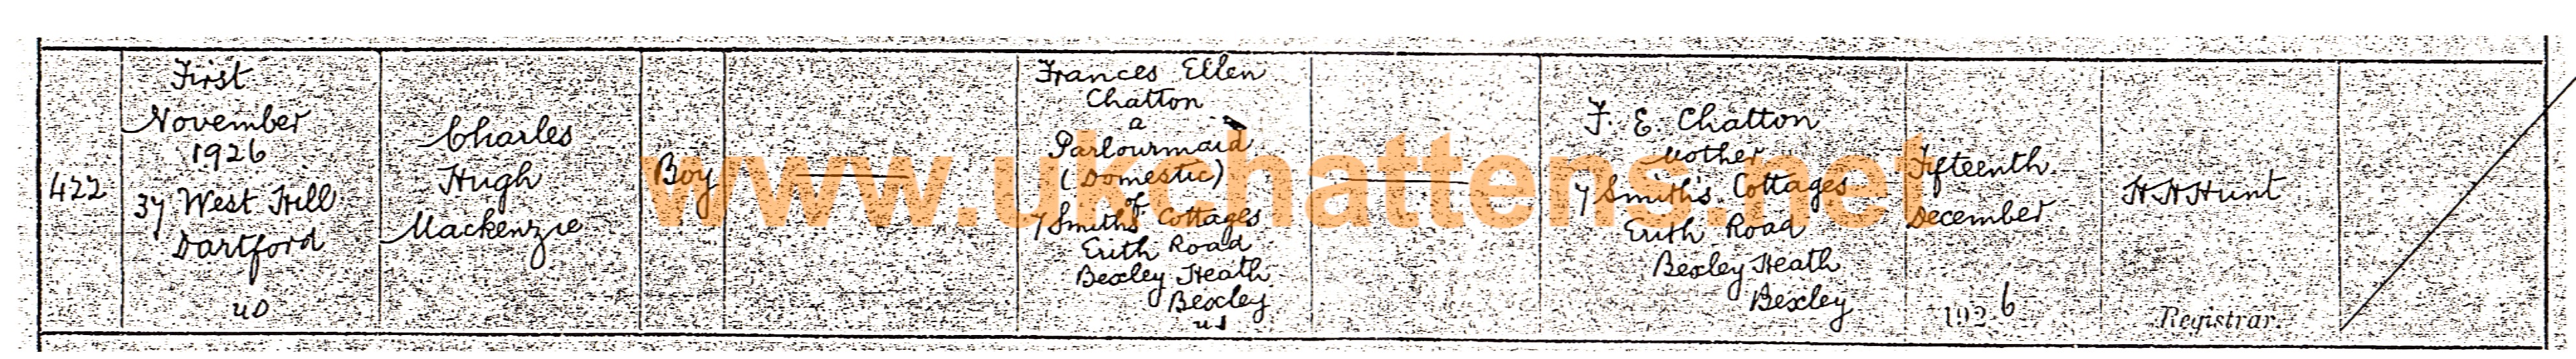 422
First
November
1926
37 West Hill
Dartford
UD
Charles
Hugh
Mackenzie
Boy
Frances Ellen
Chatton
a
Parlourmaid
(Domestic)
of
7 Smith's Cottages
Erith Road
Bexley Heath
Bexley
F. E. Chatton
Mother
7 Smith's Cottages
Erith Road
Bexley Heath
Bexley
Fifteenth
December
1926
H H Hunt
Registrar.
www.ukchattens.net